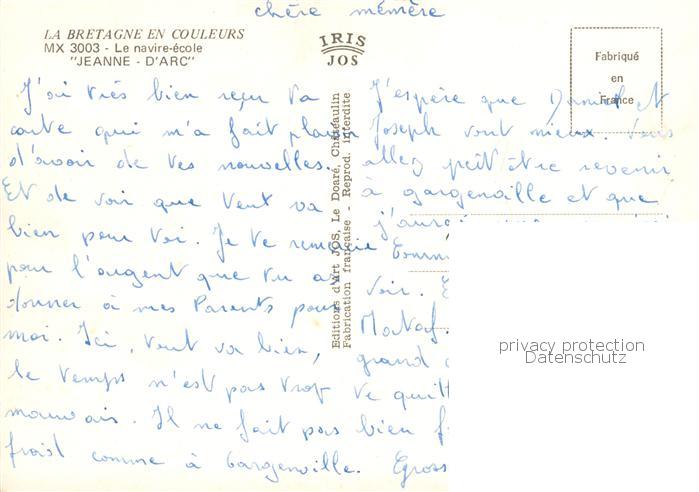 chère mémère
LA BRETAGNE EN COULEURS
MX 3003 - Le navire-école
"JEANNE - D'ARC"
IRIS
JOS
Fabriqué
en
France
J'ai très bien reçu ta
carte qui m'a fait plaisir
d'avoir de tes nouvelles.
Et de voir que tout va
bien pour toi. Je te remercie
pour l'argent que tu as
donner à mes Parents pour
moi. Ici, tout va bien,
le temps n'est pas trop
mauvais. Il ne fait pas bien
froid comme à Gargenville.
Editions d'art JOS, Le Doaré, Châteaulin
Fabrication française - Reprod. interdite
J'espère que et
Joseph vont mieux. Vous
allez peût être revenir
à gargenville et que
j'aur
voir.
grand
te quitt
f
Gross
privacy protection
Datenschutz